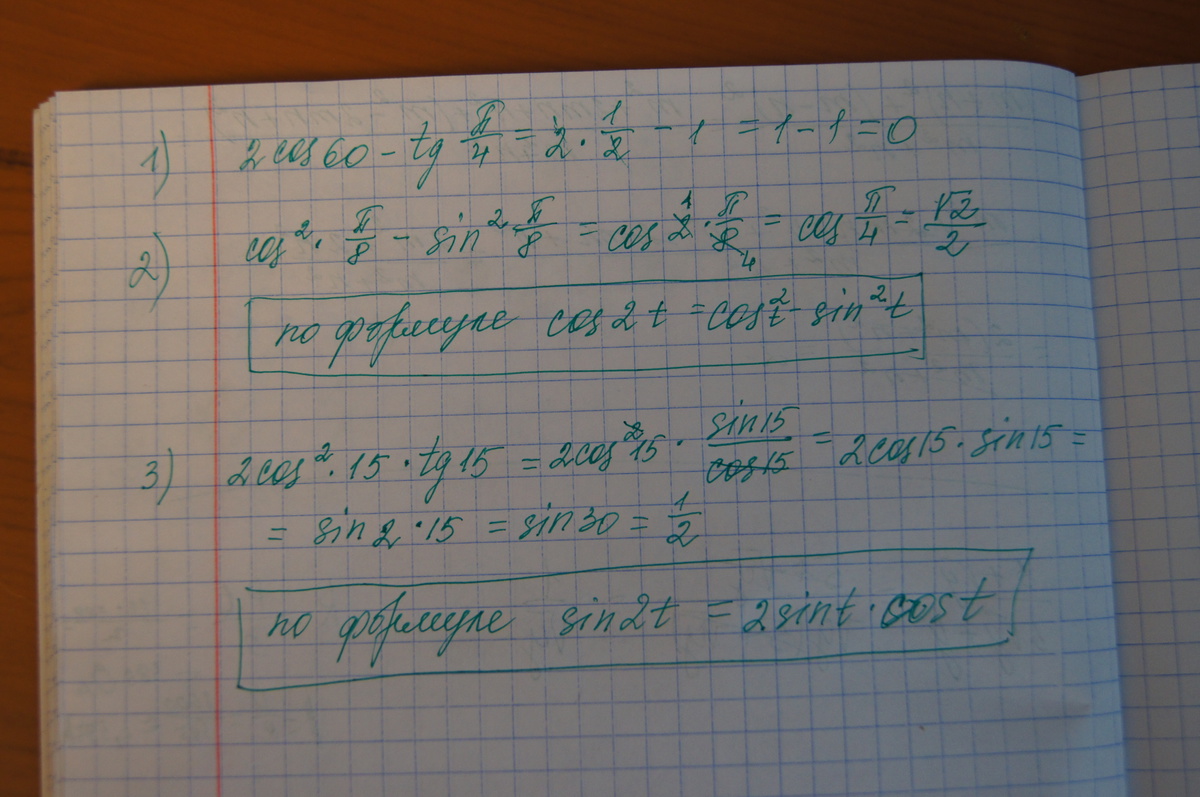 1) 2 cos 60 - tg π/4 = 2 · 1/2 - 1 = 1 - 1 = 0
2) cos² · π/8 - sin² π/8 = cos 2 · π/8 = cos π/4 = √2/2
по формуле cos 2t = cos²t - sin²t
3) 2cos² · 15 · tg 15 = 2cos²15 · sin15/cos15 = 2cos15 · sin15 =
= sin 2 · 15 = sin 30 = 1/2
по формуле sin2t = 2sint · cost